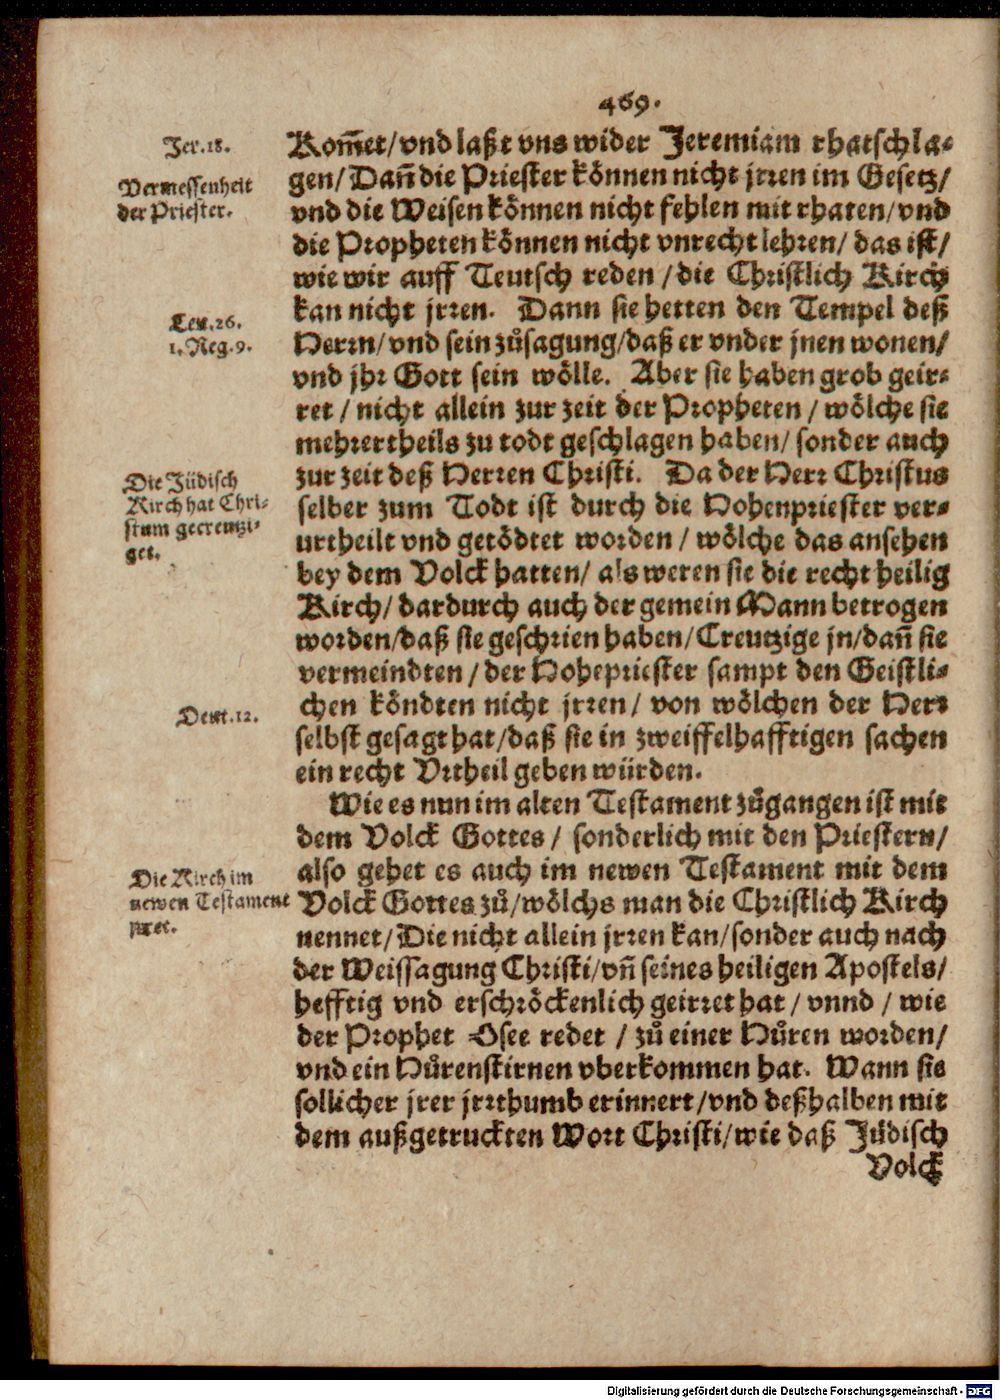 469.
Jer.18.
Vermessenheit
der Priester.
Kom̃et/vnd laßt vns wider Jeremiam rhatschla-
gen/Dañ die Priester können nicht jrren im Gesetz/
vnd die Weisen können nicht fehlen mit rhaten/vnd
die Propheten können nicht vnrecht lehren/ das ist/
wie wir auff Teutsch reden /die Christlich Kirch
kan nicht jrren. Dann sie hetten den Tempel deß
Leu.26.
1.Reg.9.
Herrn/vnd sein zůsagung/daß er vnder jnen wonen/
vnd jhr Gott sein wölle. Aber sie haben grob geir-
ret / nicht allein zur zeit der Propheten / wölche sie
mehrertheils zu todt geschlagen haben/ sonder auch
Die Jüdisch
Kirch hat Chri-
stum gecreutzi-
get.
zur zeit deß Herren Christi. Da der Herr Christus
selber zum Todt ist durch die Hohenpriester ver-
urtheilt vnd getödtet worden / wölche das ansehen
bey dem Volck hatten/ als weren sie die recht heilig
Kirch/ dardurch auch der gemein Mann betrogen
worden/daß sie geschrien haben/Creutzige jn/dañ sie
vermeindten / der Hohepriester sampt den Geistli-
Deut.12.
chen köndten nicht jrren/ von wölchen der Herr
selbst gesagt hat/daß sie in zweiffelhafftigen sachen
ein recht Vrtheil geben würden.
Wie es nun im alten Testament zůgangen ist mit
dem Volck Gottes / sonderlich mit den Priestern/
Die Kirch im
newen Testament
jrret.
also gehet es auch im newen Testament mit dem
Volck Gottes zů/wölchs man die Christlich Kirch
nennet/Die nicht allein jrren kan/sonder auch nach
der Weissagung Christi/vñ seines heiligen Apostels/
hefftig vnd erschröckenlich geirret hat / vnnd / wie
der Prophet Osee redet / zů einer Hůren worden/
vnd ein Hůrenstirnen vberkommen hat. Wann sie
sollicher jrer jrrthumb erinnert/vnd deßhalben mit
dem außgetruckten Wort Christi/wie daß Jüdisch
Volck
Digitalisierung gefördert durch die Deutsche Forschungsgemeinschaft - DFG